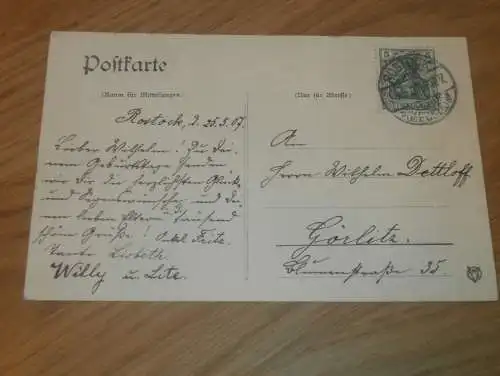 Postkarte
(Raum für Mitteilungen)
(Nur für Adresse)
5 5
Rostock, d. 25.5.07.
Lieber Wilhelm! Zu Dei-
nem Geburtstage senden
wir Dir die herzlichsten Glück-
und Segenswünsche, und Dei-
nen lieben Eltern tausend
schöne Grüße! Onkel Fritz.
Tante Lisbeth.
Willy u. Lite.
An
Herrn Wilhelm Dettloff
Görlitz.
Blumenstraße 35